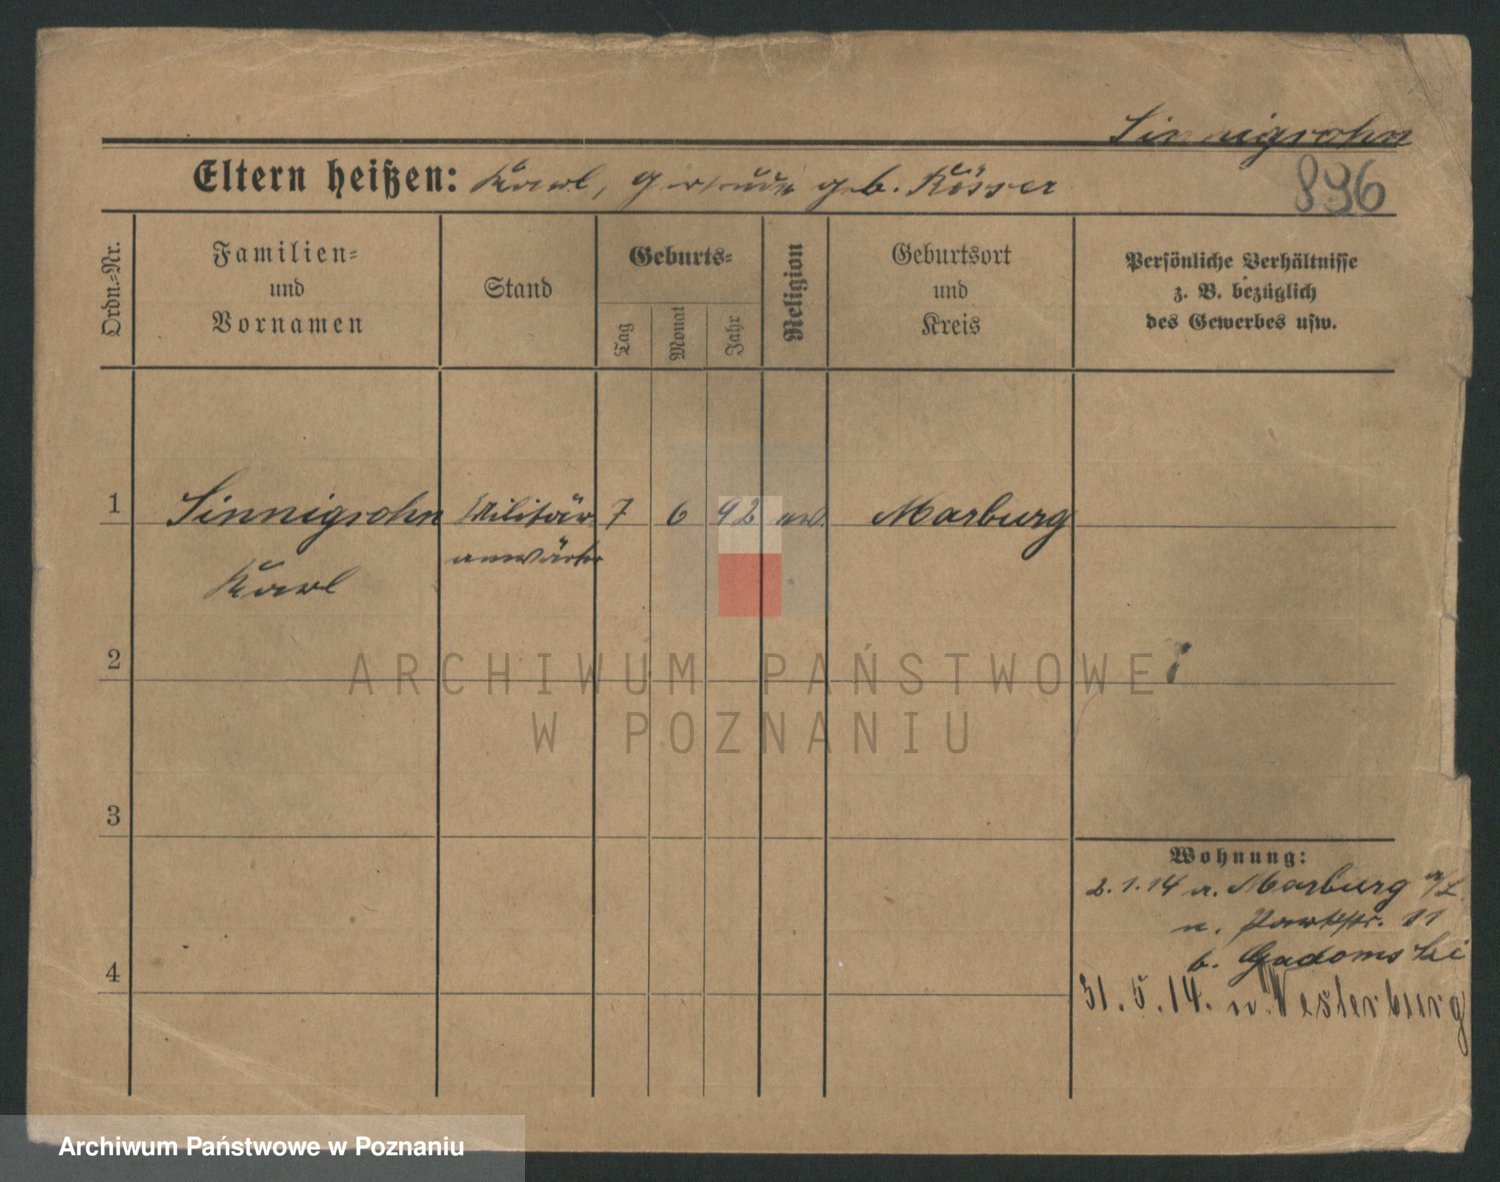 Sinnigsohn
Eltern heißen: Karl, Gertrude geb. Rösser
896
Ordn.-Nr.
Familien-
und
Vornamen
Stand
Geburts-
Tag
Monat
Jahr
Religion
Geburtsort
und
Kreis
Persönliche Verhältnisse
z. B. bezüglich
des Gewerbes usw.
1 Sinnigsohn Militär 7 6 92 Marburg
anwärter
Karl
2
ARCHIWUM PAŃSTWOWE
W POZNANIU
3
Wohnung:
2.1.14 a. Marburg a/L.
n. Parkstr. 11
b. Gadomski
4
31.5.14. n. Westerburg
Archiwum Państwowe w Poznaniu